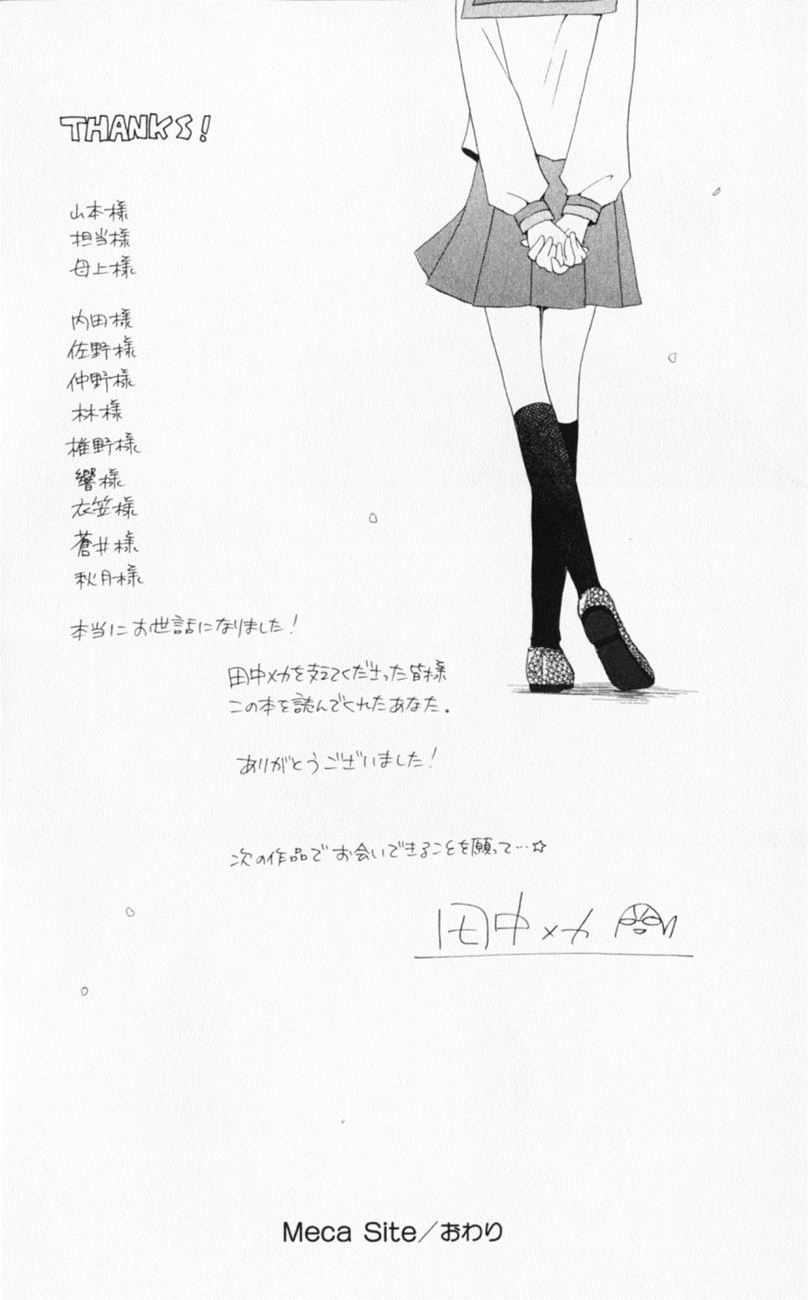 THANKS!
山本様
担当様
母上様
内田様
佐野様
仲野様
林様
椎野様
響様
衣笠様
蒼井様
秋月様
本当にお世話になりました!
田中メカを支えてくださった皆様
この本を読んでくれたあなた。
ありがとうございました!
次の作品でお会いできることを願って…☆
田中メカ
Meca Site/おわり